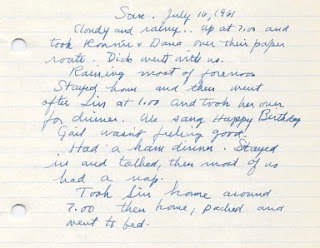 Sun. July 16, 1961
Cloudy and rainy.. up at 7.00 and
took Ronnie & Dana over their paper
route. Dick went with us.
Raining most of forenoon
Stayed home and then went
after Lin at 1.00 and took her over
for dinner. We sang Happy Birthday
Gail wasn't feeling good.
Had a ham dinner. Stayed
in and talked, then most of us
had a nap.
Took Lin home around
7.00 then home, packed and
went to bed.